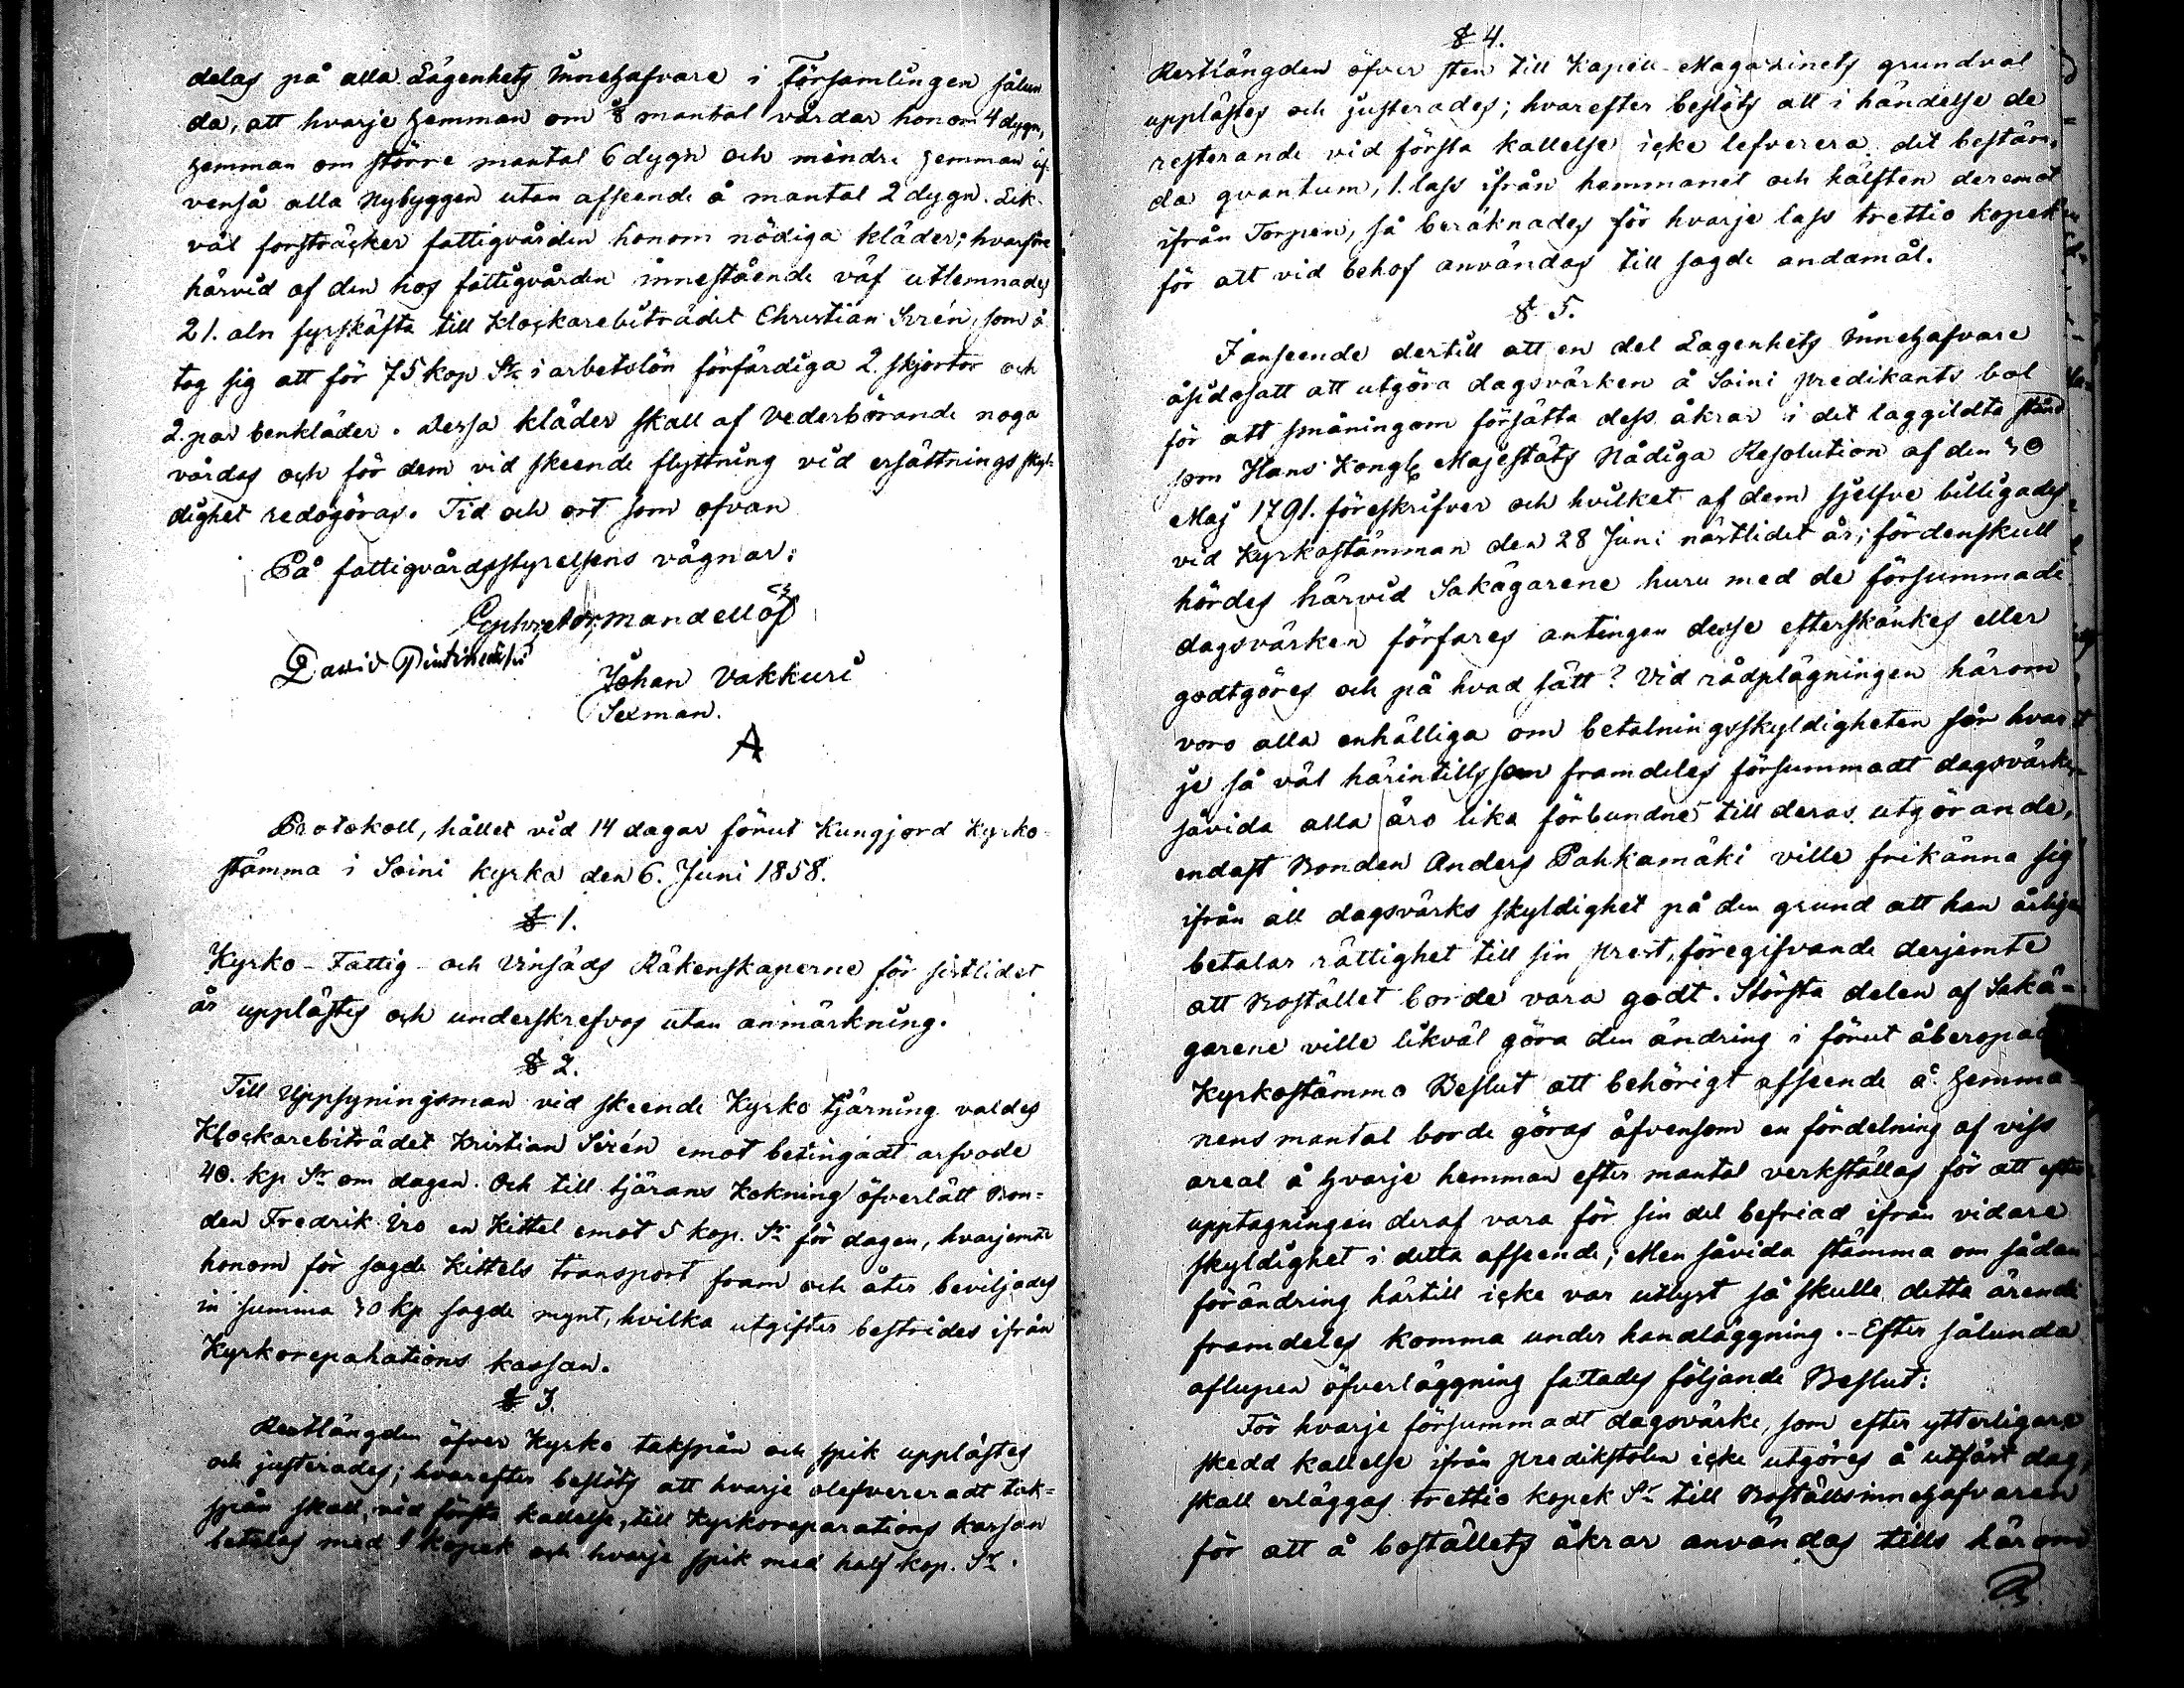 delas på alla Lägenhets Innehafvare i Församlingen sålun
da, att hvarje hemman om mantal vårdar honom 4 dygn,
hemman om större mantal 6 dygn och mindre hemman äf-
venså alla Nybyggen utan afseende å mantal 2 dygn. Lik-
väl forsträcker fattigvården honom nödiga kläder; hvarföre
härvid af den hos fattigvården innestående väf utlemnades
21. aln fyrskäfta till Klockarebiträdet Christian Sirén, som å
tog sig att för 75 kop Sr i arbetslön förfärdiga 2. skjortor och
2. par benkläder. Dessa kläder skall af Vederbörande noga
vårdas och för dem vid skeende flyttning vid ersättnings skyl-
dighet redogöras. Tid och ort som ofvan
På fattigvårdsstyrelsens vägnar:
Mandellöf
David
Johan Vakkuri
Sexman.
A
Protokoll, hållet vid 14 dagar förut Kungjord Kyrko-
stämma i Soini kyrka den 6. Juni 1858.
§ 1.
Kyrko- Fattig- och Vinsäds Räkenskaperne för sistlidet
år upplästes och underskrefvos utan anmärkning.
§ 2.
Till Uppsyningsman vid skeende Kyrko tjärning valdes
Klockarebiträdet Kristian Sirén emot betingadt arfvode
40. kp Sr om dagen. Och till tjärans Kokning öfverlätt Bon-
den Fredrik Iro en Kittel emot 5 kop. Sr för dagen, hvarjemte
honom för sagde Kittels transport fram och åter beviljades
in summa 30 kp sagde mynt, hvilka utgifter bestrides ifrån
Kyrkoreparations kassan.
§ 3.
Restlängden öfver Kyrko takspån och spik upplästes
och justerades; hvarefter beslöts att hvarje olefvereradt tak-
spån skall, vid första kallelse, till Kyrkoreparations kassan
betalas med 1 kopek och hvarje spik med half kop. Sr.
§ 4.
Restlängden öfver sten till Kapell-Magazinets grundval
upplästes och justerades; hvarefter beslöts att i händelse de
resterande vid första kallelse icke lefverera det bestäm-
da qvantum, 1. lass ifrån hemmanet och hälften deremot
ifrån Torpen, så beräknades för hvarje lass trettio kopek
för att vid behof användas till sagde andamål.
§ 5.
I anseende dertill att en del Lägenhets Innehafvare
åsidosatt att utgöra dagsvärken å Soini predikants bol
för att småningom försätta dess åkrar i det laggildta stånd
som Hans Kongl Majestäts Nådiga Resolution af den 30
Maj 1791. föreskrifver och hvilket af dem sjelfve billigades
vid Kyrkostämman den 28 Juni nästlidet år; fördenskull
hördes härvid Sakägarene huru med de försummade
dagsvärken förfares antingen desse efterskänkes eller
godtgöres och på hvad sätt? Vid rådplägningen härom
voro alla enhälliga om betalningsskyldigheten för hvar-
je så väl härintills som framdeles försummadt dagsvärke,
såvida alla äro lika förbundne till deras utgörande,
endast Bonden Anders Pahkamäki ville frikänna sig
ifrån all dagsvärks skyldighet på den grund att han årligen
betalar rättighet till sin prest, föregifvande derjemte
att Bostället borde vara godt. Största delen af Sakä-
garene ville likväl göra den ändring i förut åberopade
Kyrkostämmo Beslut att behörigt afseende å hemma-
nens mantal borde göras äfvensom en fördelning af viss
areal å hvarje hemman efter mantal verkställas för att efter
upptagningen deraf vara för sin del befriad ifrån vidare
skyldighet i detta afseende; Men såvida stämma om sådan
förändring härtill icke var utlyst så skulle detta ärende
framdeles komma under handläggning. - Efter sålunda
aflupen öfverläggning fattades följande Beslut:
För hvarje försummadt dagsvärke, som efter ytterligare
skedd kallelse ifrån predikstolen icke utgöres å utsatt dag,
skall erläggas trettio kopek Sr till Boställsinnehafvaren
för att å boställets åkrar användas tills härom